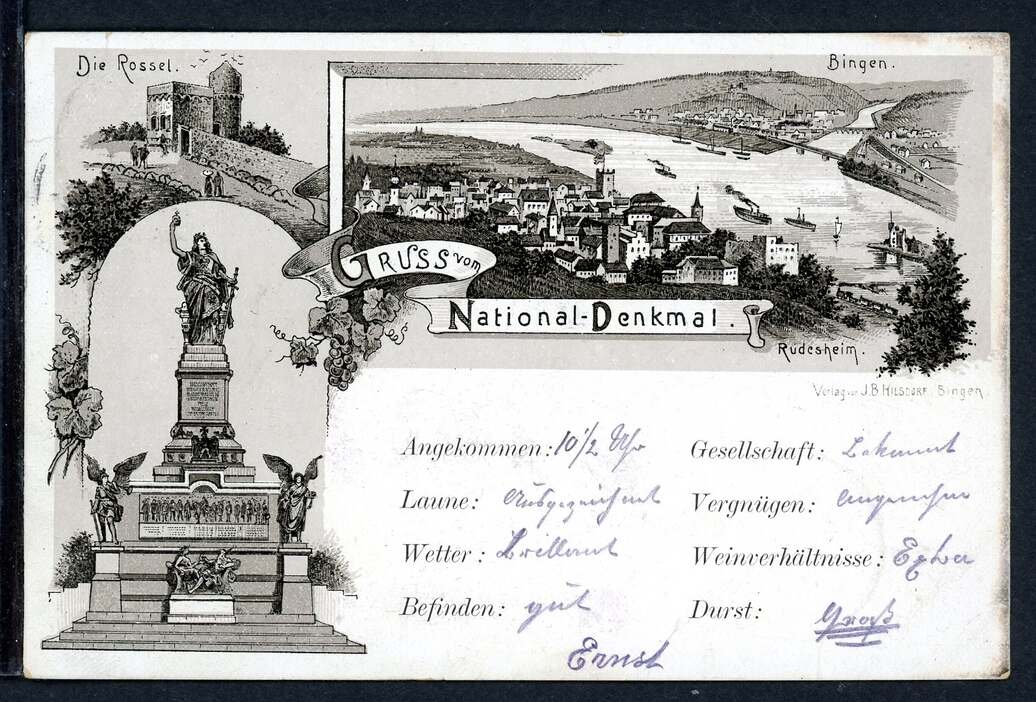 Die Rossel.
Bingen.
Gruss vom
National-Denkmal.
Rüdesheim.
Verlag von J.B. Hilsdorf, Bingen
Angekommen: 10 1/2 Uhr
Gesellschaft: Bekannt
Laune: Ausgezeichnet
Vergnügen: angenehm
Wetter: Brillant
Weinverhältnisse: Extra
Befinden: gut
Durst: Groß
Ernst